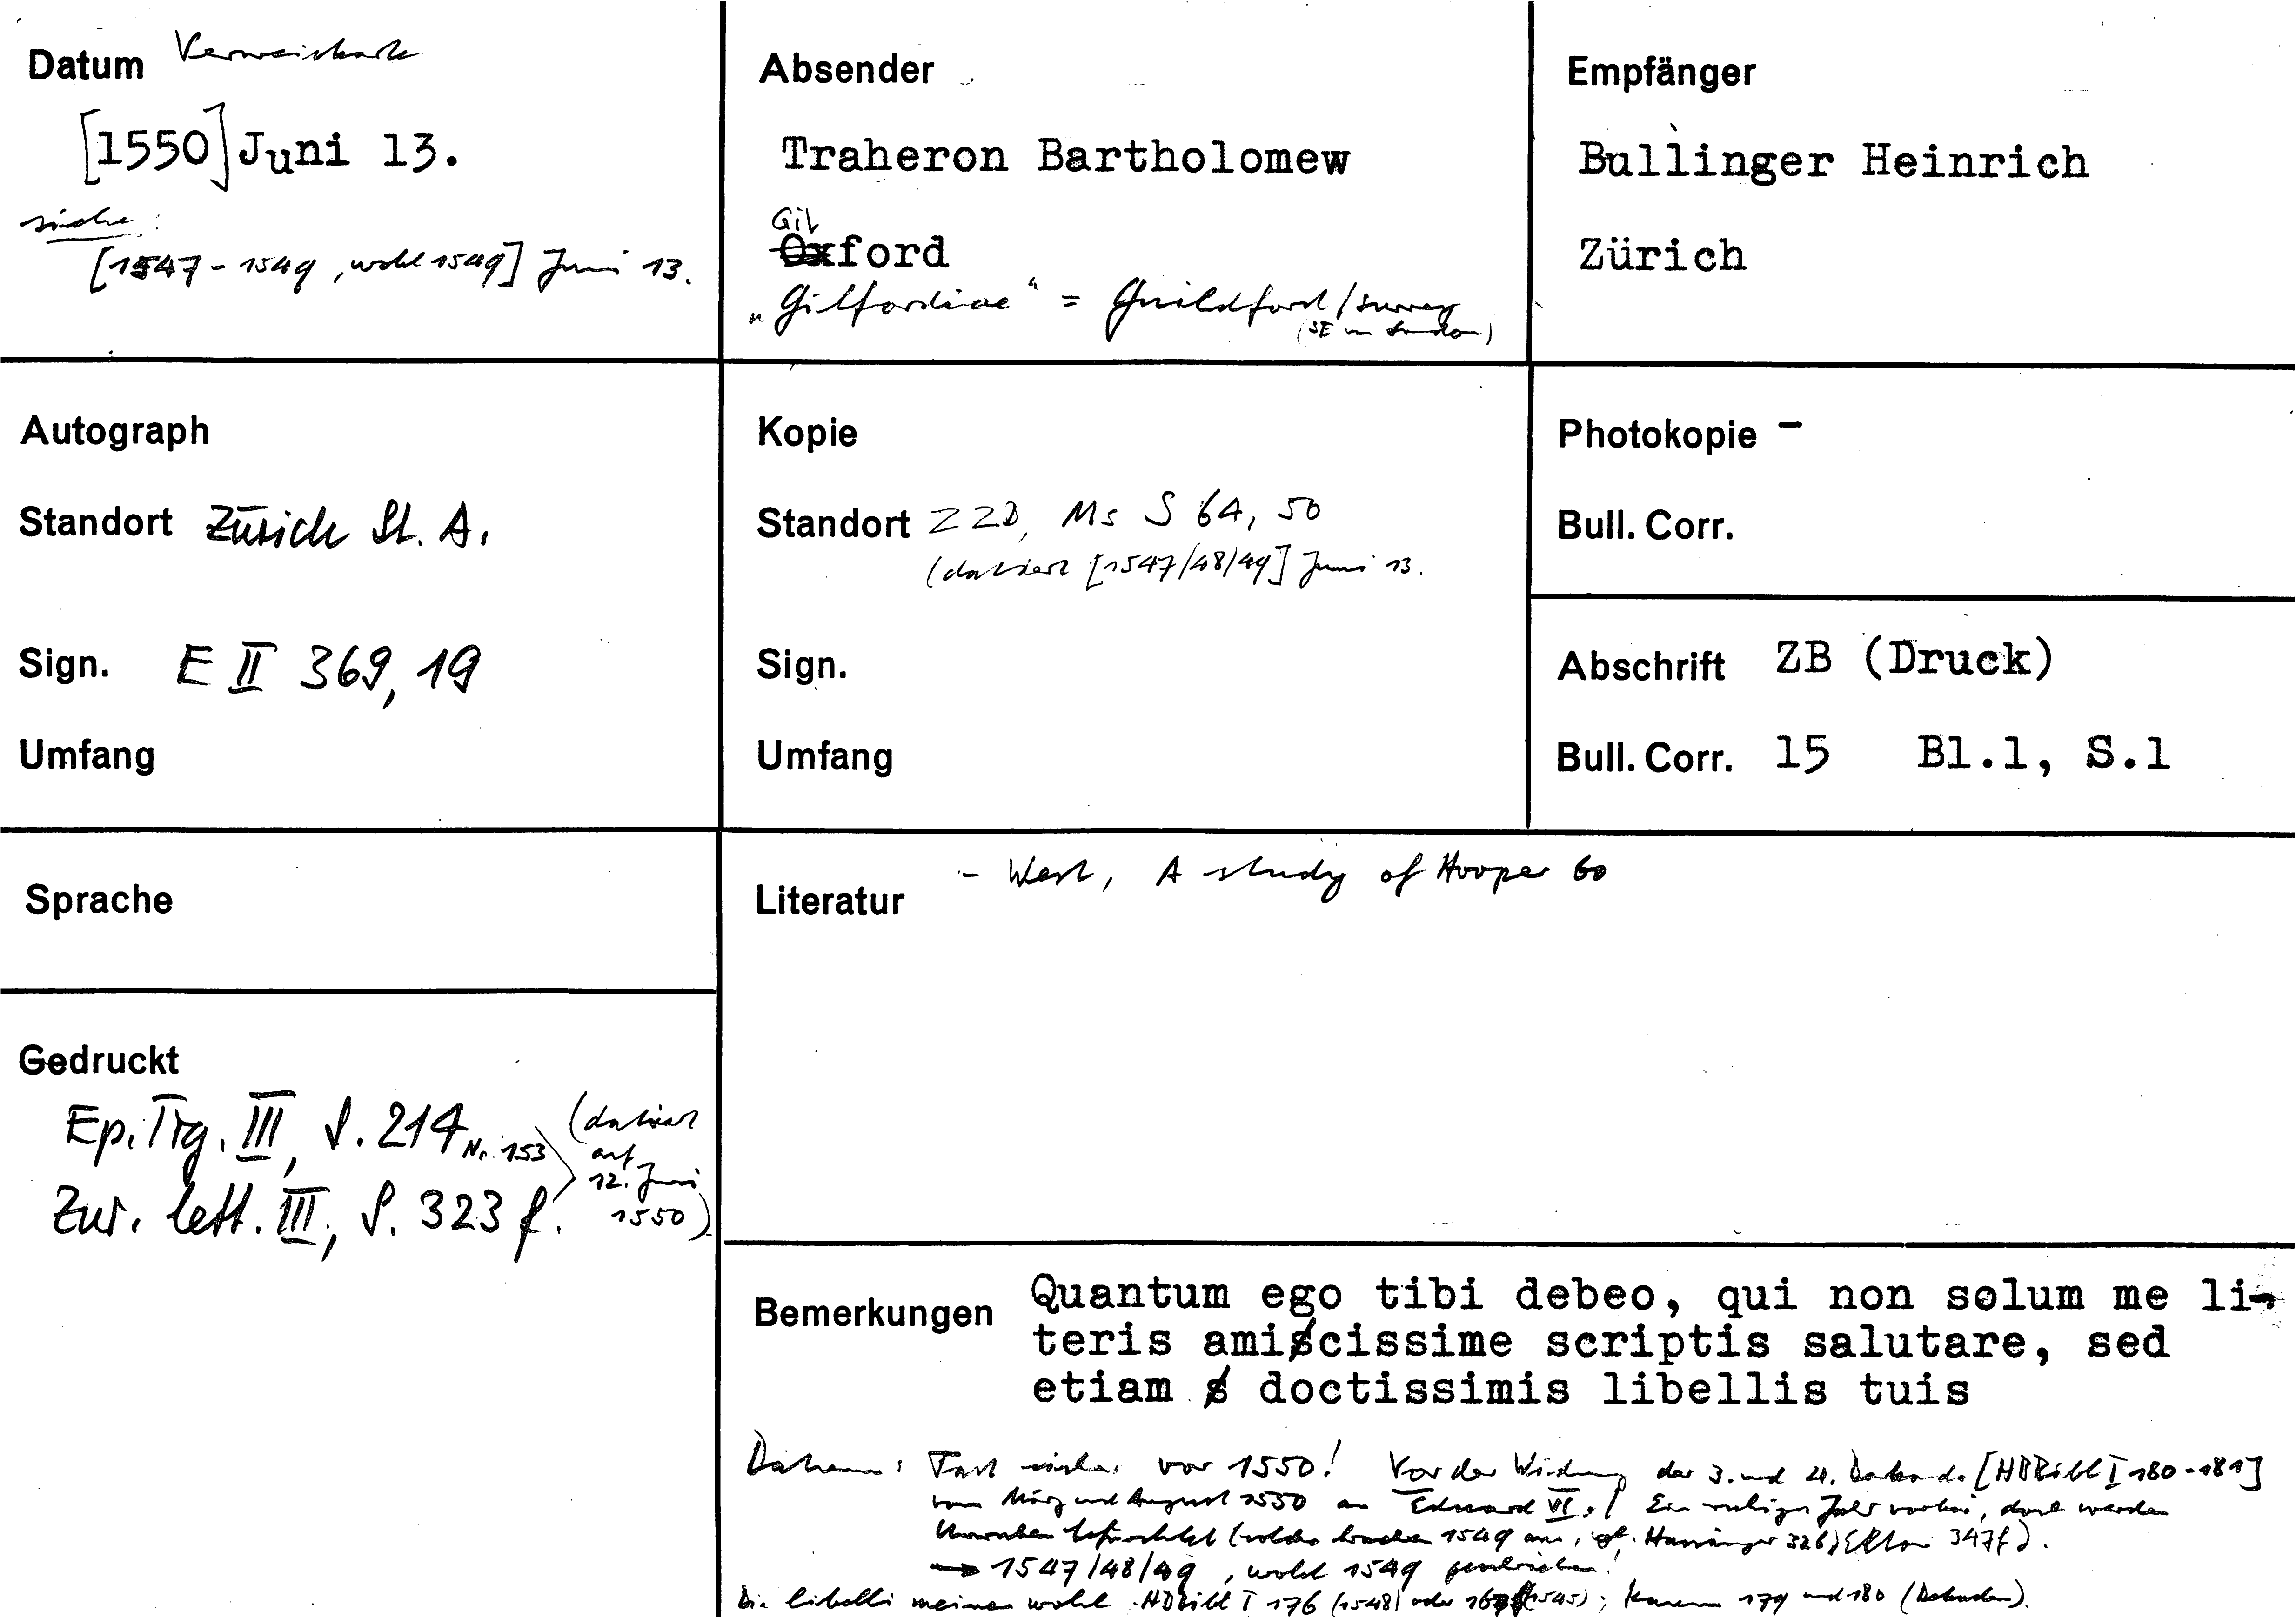 Datum Verweiskarte
[1550] Juni 13.
siehe:
[1547 - 1549, wohl 1549] Juni 13.
Absender
Traheron Bartholomew
Gil
Oxford
"Gilfordiae" = Guildford/Surrey
(SE von London)
Empfänger
Bullinger Heinrich
Zürich
Autograph
Standort Zürich St. A.
Sign. E II 369, 19
Umfang
Kopie
Standort ZZB, Ms S 64, 50
(datiert [1547/48/49] Juni 13.
Sign.
Umfang
Photokopie -
Bull. Corr.
Abschrift ZB (Druck)
Bull. Corr. 15 Bl.1, S.1
Sprache
Literatur - West, A study of Hooper 60
Gedruckt
Ep. Tig. III, S. 214 Nr. 153
Zur. lett. III, S. 323 f.
(datiert
auf
12. Juni
1550)
Bemerkungen Quantum ego tibi debeo, qui non solum me li-
teris amiscissime scriptis salutare, sed
etiam s doctissimis libellis tuis
Datum: Fast sicher vor 1550! Vor der Widmung der 3. und 4. Dekade [HBBibl I 180-181]
vom März und August 1550 an Eduard VI.! Ein ruhiges Jahr vorbei, doch werden
Unruhen befürchtet (solche brachen 1549 aus, cf. 326) Elton 347f).
→ 1547/48/49, wohl 1549 geschrieben!
Die libelli meinen wohl HBBibl I 176 (1548) oder (1545); kaum 179 und 180 (Dekaden).